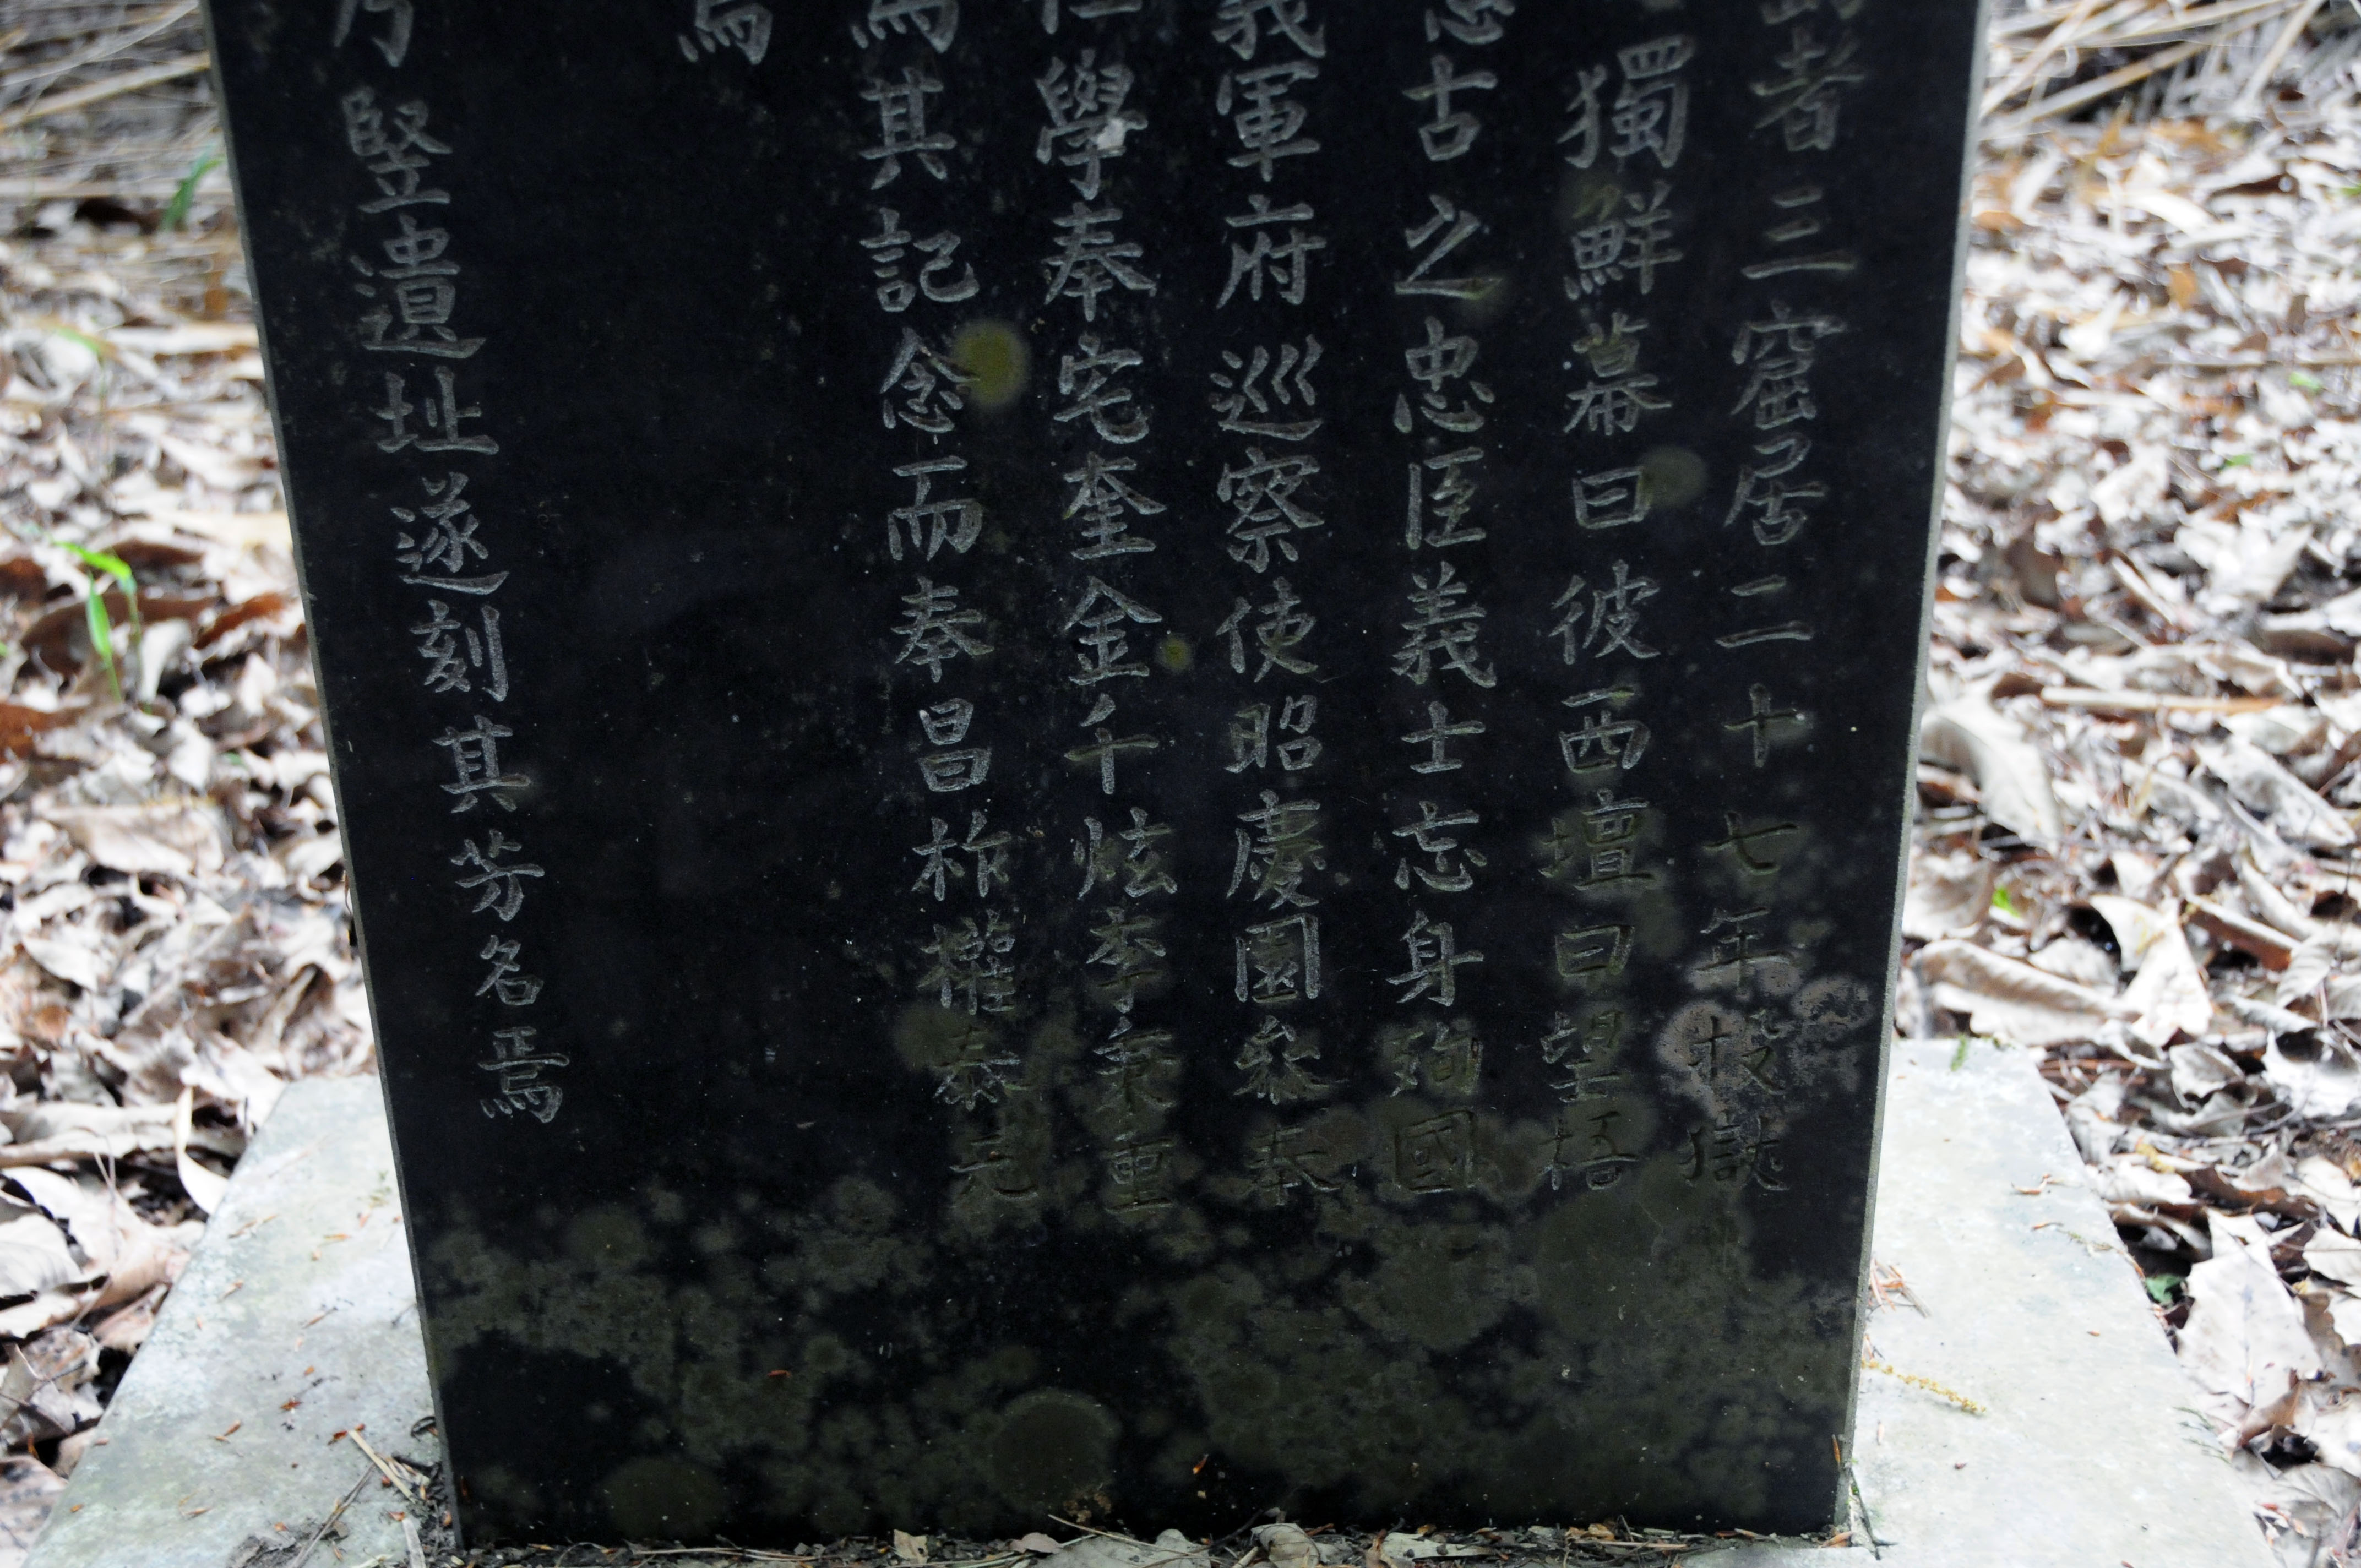 者三窟居二十七年投獄
獨鮮幕曰彼西壇曰望梧
古之忠臣義士忘身殉國
義軍府巡察使昭慶園參奉
學奉宅奎金千炫李秉重
焉其記念而奉昌柞權泰元
焉
乃竪遺址遂刻其芳名焉